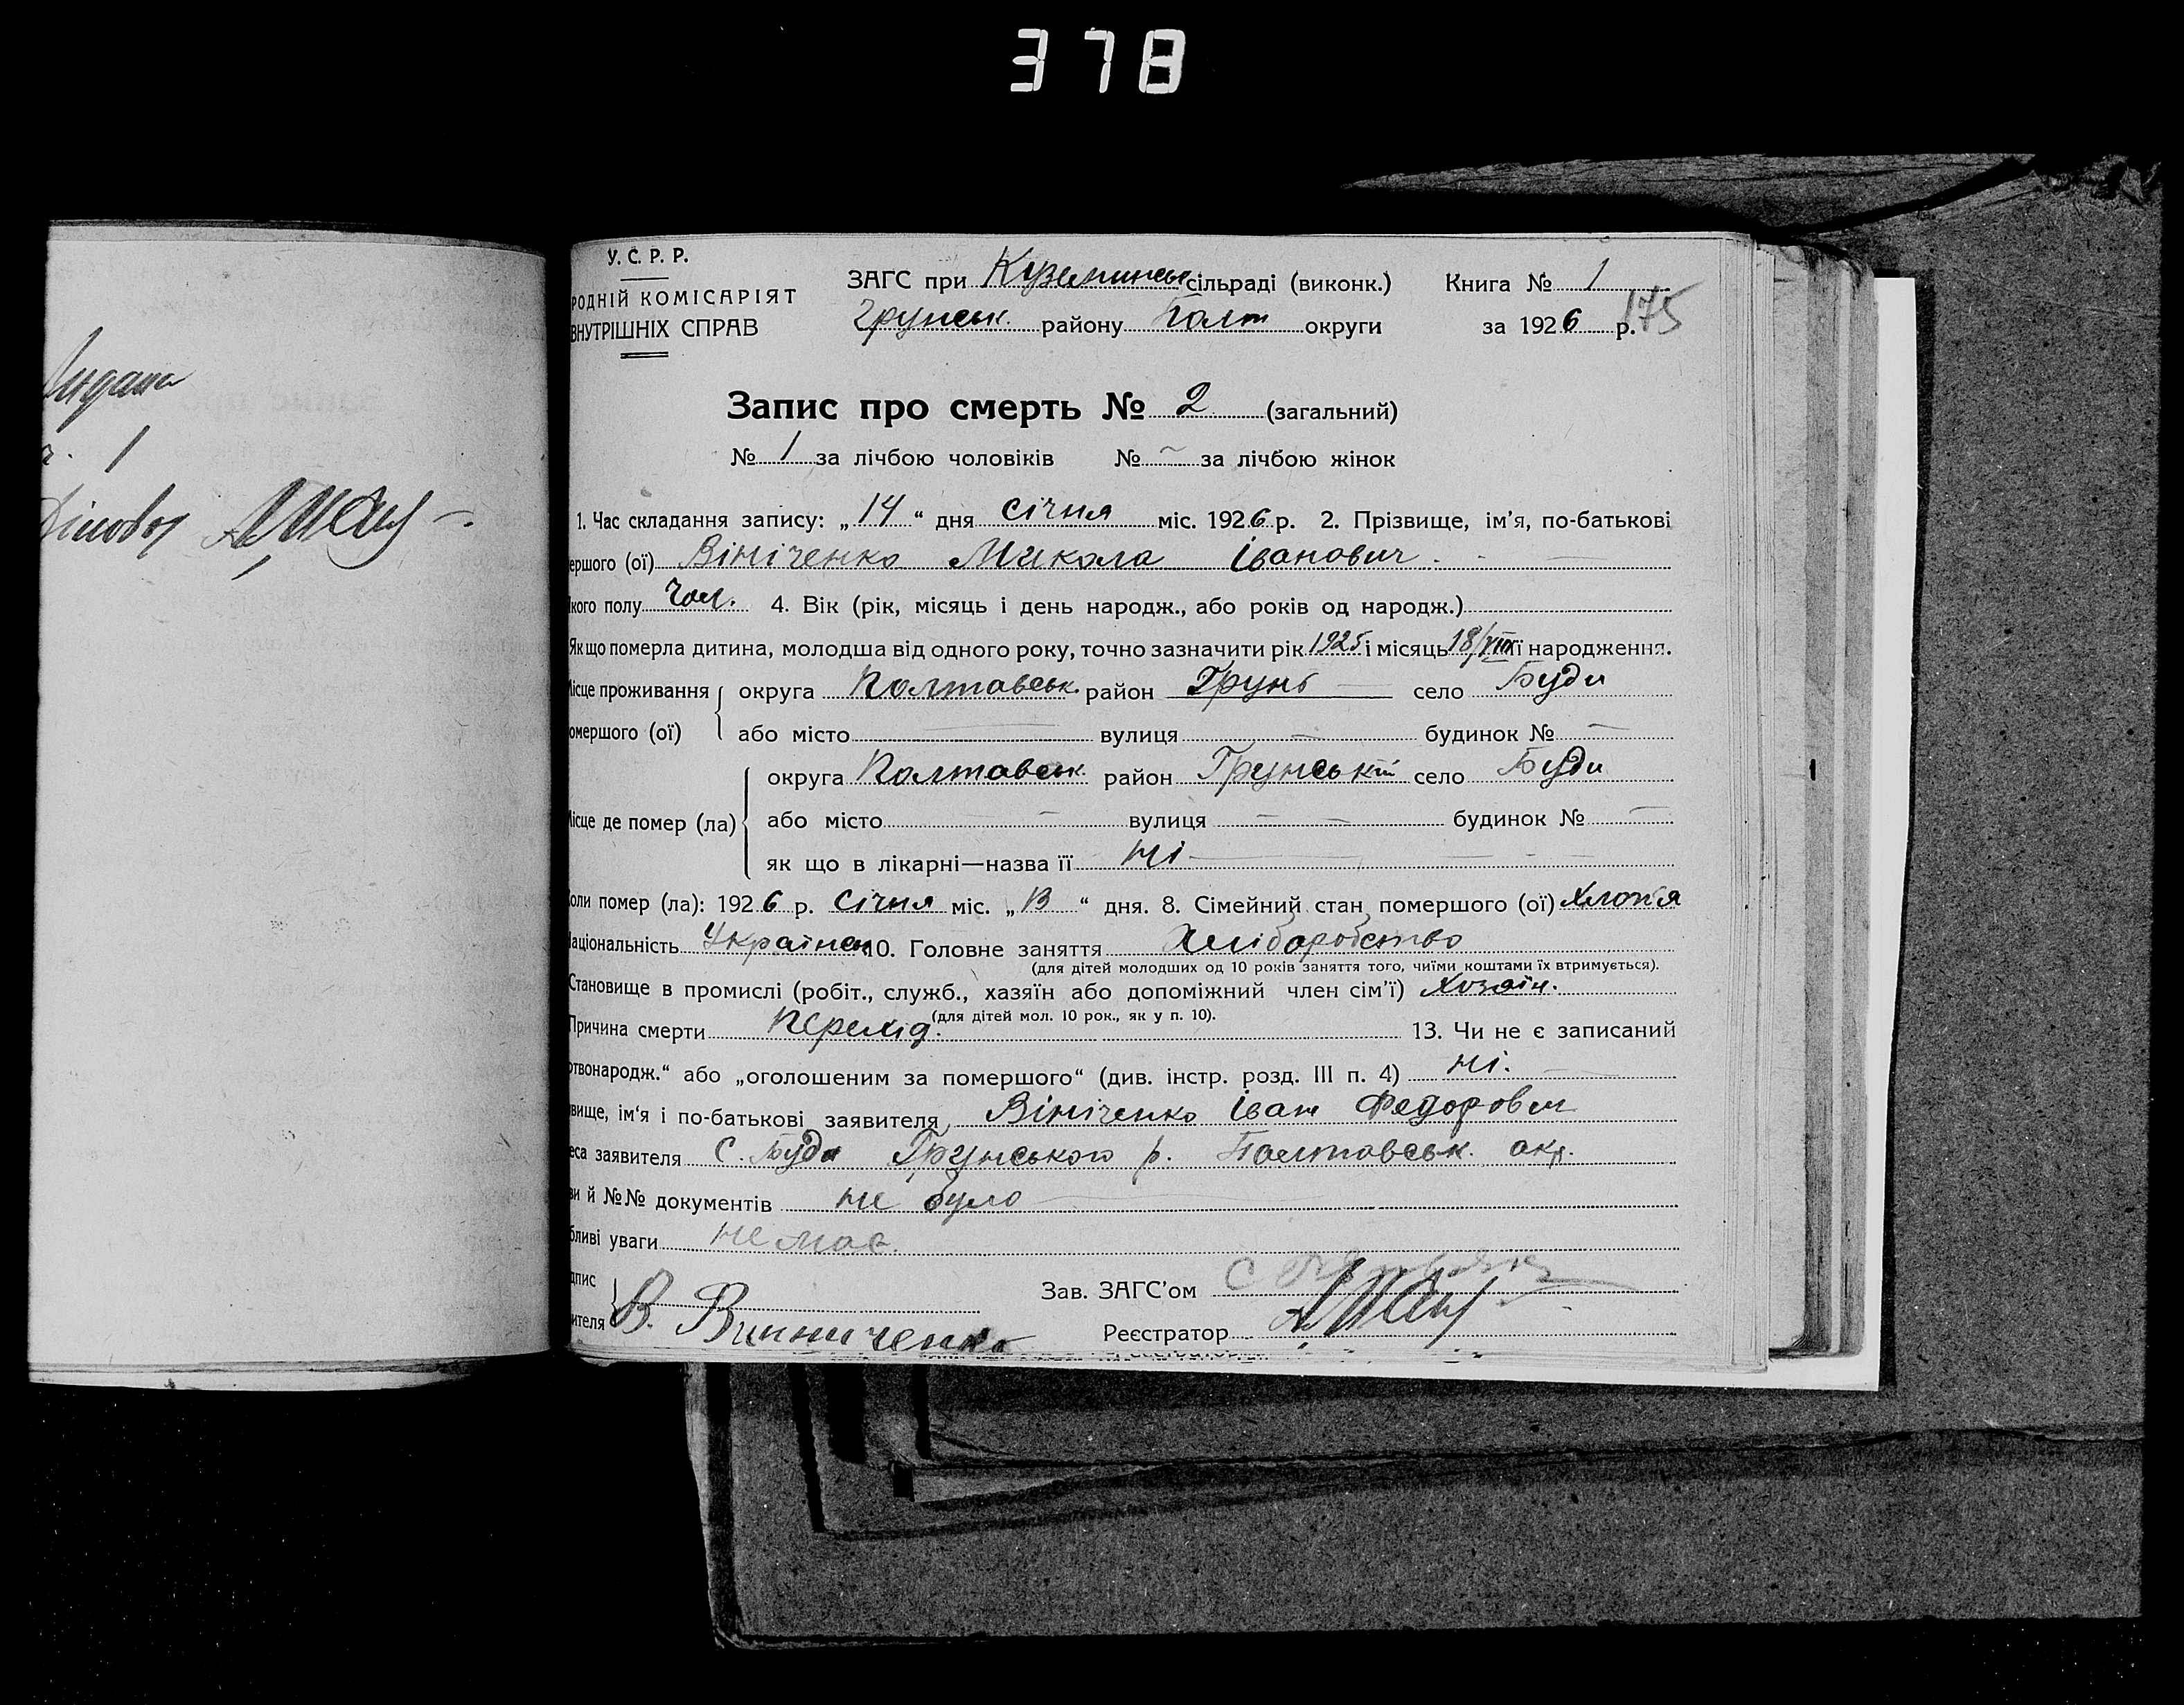 378
У. С. Р. Р.
РОДНІЙ КОМІСАРІЯТ
ВНУТРІШНІХ СПРАВ
ЗАГС при Куземинськ сільраді (виконк.) Книга № 1
Грунськ. району Полт округи за 1926 р. 175
Запис про смерть № 2 (загальний)
№ 1 за лічбою чоловіків № ~ за лічбою жінок
1. Час складання запису: „14“ дня січня міс. 1926 р. 2. Прізвище, ім’я, по-батькові
ершого (ої) Вініченко Микола Іванович
кого полу чол. 4. Вік (рік, місяць і день народж., або років од народж.)
Якщо померла дитина, молодша від одного року, точно зазначити рік 1925 і місяць 18/VIII її народження.
Місце проживання округа Полтавськ. район Грунь село Буди
омершого (ої) або місто — вулиця — будинок № —
округа Полтавськ. район Грунський село Буди
Місце де помер (ла) або місто — вулиця — будинок № —
як що в лікарні—назва її ні
Коли помер (ла): 1926 р. січня міс. „13“ дня. 8. Сімейний стан помершого (ої) хлоп'я
Національність Українец 10. Головне заняття Хліборобство
(для дітей молодших од 10 років заняття того, чиїми коштами їх втримується).
Становище в промислі (робіт., служб., хазяїн або допоміжний член сім’ї) хозяїн.
(для дітей мол. 10 рок., як у п. 10).
Причина смерти 13. Чи не є записаний
ртвонародж.“ або „оголошеним за помершого“ (див. інстр. розд. III п. 4) ні.
звище, ім‘я і по-батькові заявителя Вініченко Іван Федорович
еса заявителя с. Буда Грунського р. Полтавськ. окр.
ви й №№ документів не було
бливі уваги немає.
дпис
ителя В. Винниченко
Зав. ЗАГС’ом
Реєстратор